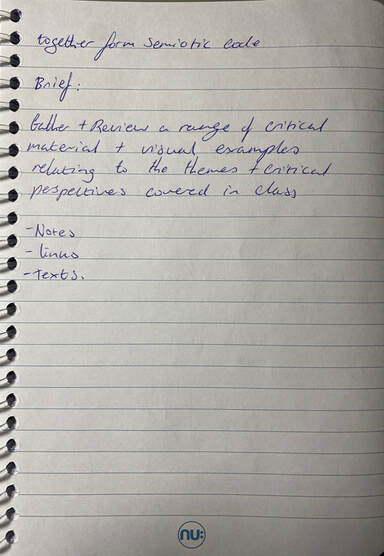 together form semiotic code
Brief:
Gather + Review a range of critical
material + visual examples
relating to the themes + critical
pespectives covered in class
- Notes
- links
- Texts.
nu: